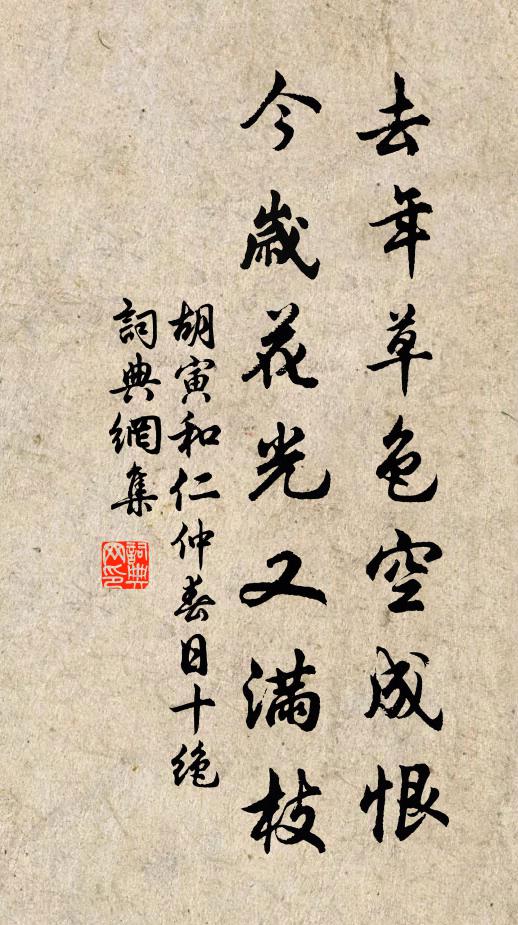 去年草色空成恨
今歲花光又滿枝
胡寅和仁仲春日十絕
詞典網集
詞典网印